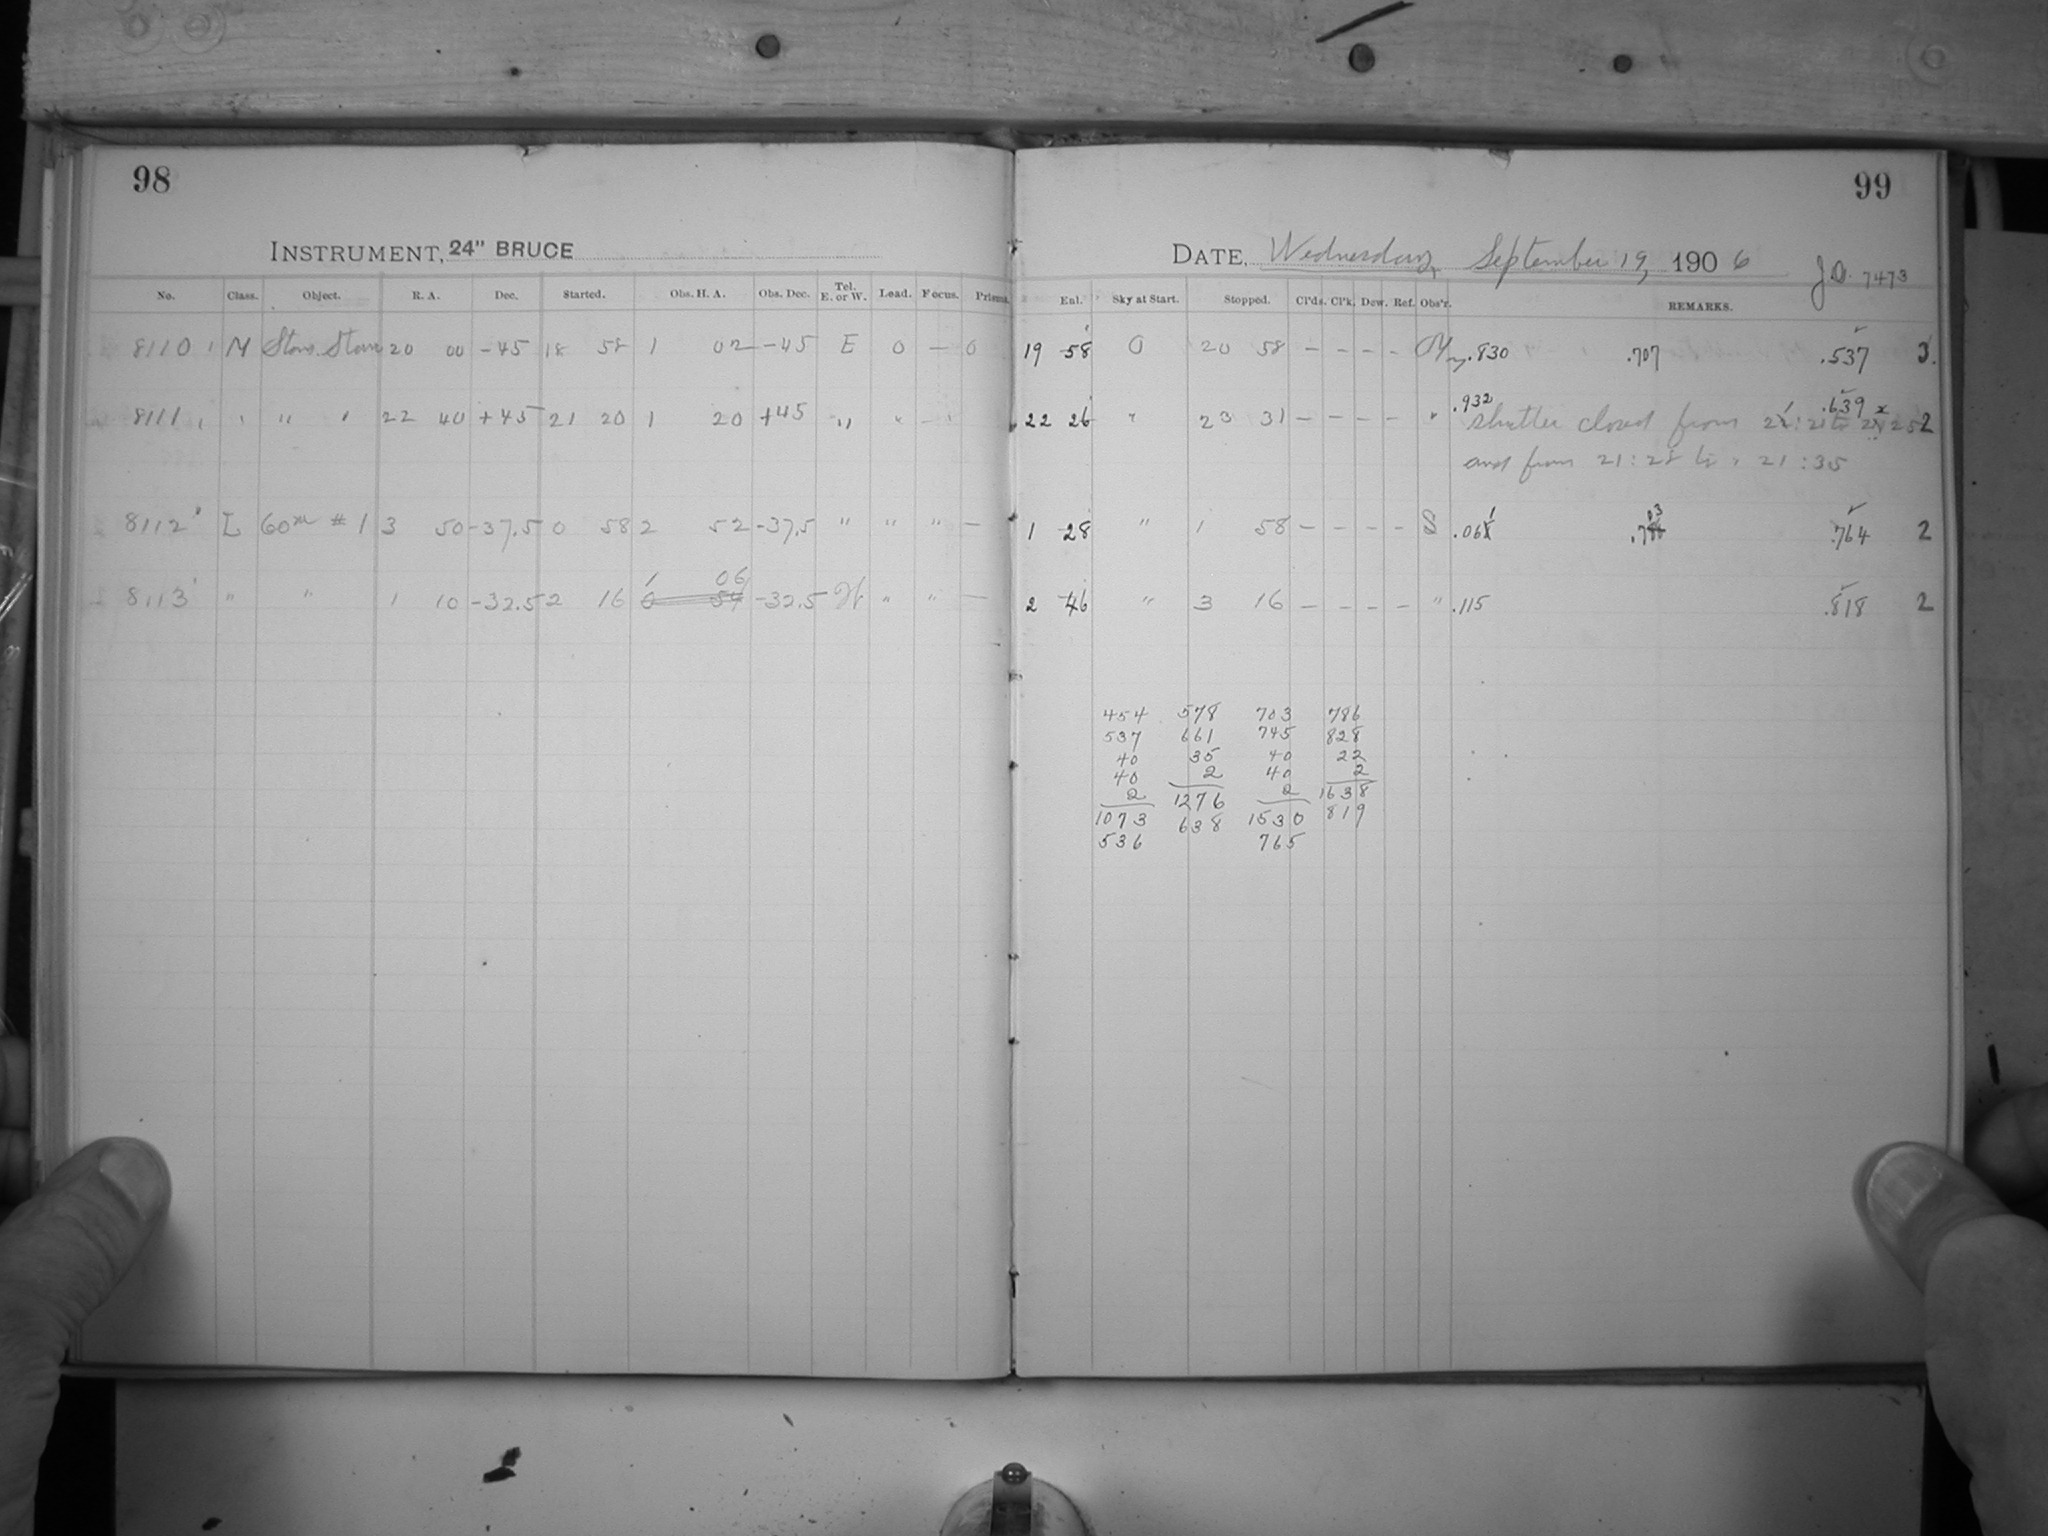 98
INSTRUMENT, 24" BRUCE
No. Class. Object. R. A. Dec. Started. Obs. H. A. Obs. Dec. Tel. E. or W. Lead. Focus. Prisms.
8110 M 20 00 -45 18 58 1 02 -45 E 0 — 0
8111 " " " 22 40 +45 21 20 1 20 +45 " " —
8112 L 60m #1 3 50 -37.5 0 58 2 52 -37.5 " " " —
06
8113 " " 1 10 -32.5 2 16 -32.5 W " " —
99
DATE, Wednesday, September 19, 1906 J.D. 7473
Eal. Sky at Start. Stopped. Cl'ds. Cl'k. Dew. Ref. Obs'r. REMARKS.
19 58 0 20 58 – – – – .830 .707 .537 3.
.932 .639
22 26 " 23 31 – – – – " Shutter closed from 2
and from 21:28 to 21:35
1 28 " 1 58 – – – – S .764 2
2 46 " 3 16 – – – – " .115 .818 2
454 578 703 786
537 661 745 828
40 35 40 22
40 2 40 2
2 1276 2 1638
1073 638 1530 819
536 765